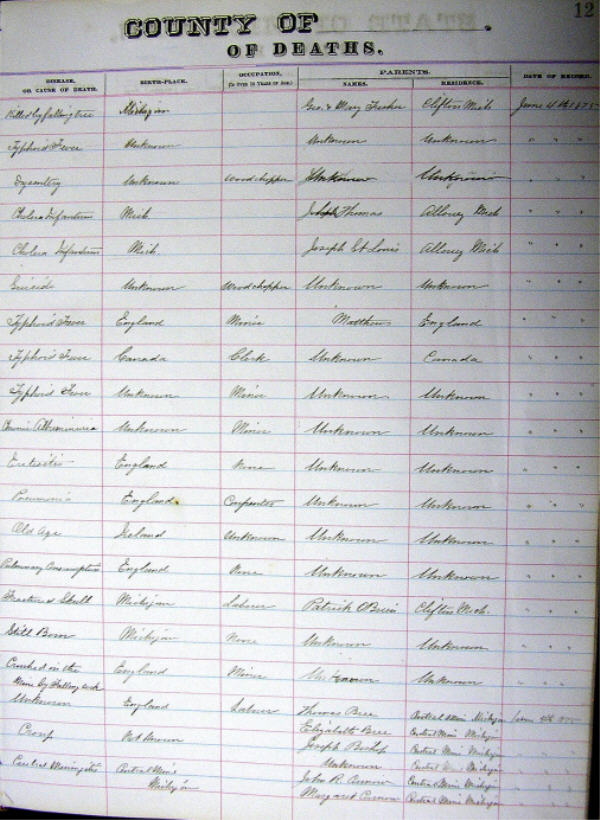 12
COUNTY OF .
OF DEATHS.
DISEASE, OR CAUSE OF DEATH. BIRTH-PLACE. OCCUPATION, PARENTS. NAMES. RESIDENCE. DATE OF RECORD.
Killed by falling tree Michigan Geo. & Mary Clifton Mich June 4th 1875
Typhoid Fever Unknown Unknown Unknown " " "
Dysentery Unknown Woodchopper Unknown Unknown " " "
Cholera Infantum Mich Thomas Allouez Mich " " "
Cholera Infantum Mich. Joseph St Louis Allouez Mich " " "
Suicide Unknown Wood chopper Unknown Unknown " " "
Typhoid Fever England Miner Matthews England " " "
Typhoid Fever Canada Clerk Unknown Canada " " "
Typhoid Fever Unknown Miner Unknown Unknown " " "
Albuminuria Unknown Miner Unknown Unknown " " "
Enteritis England None Unknown Unknown " " "
Pneumonia England. Carpenter Unknown Unknown " " "
Old Age Ireland Unknown Unknown Unknown " " "
Pulmonary Consumption England None Unknown Unknown " " "
Fractured Skull Michigan Laborer Patrick O'Brien Clifton Mich. " " "
Still Born Michigan None Unknown Unknown " " "
Crushed in the England Miner Unknown Unknown " " "
Mine by falling rock
Unknown England Laborer Thomas Central Mine Michigan June 4th 1875
Elizabeth Central Mine Michigan
Croup Not Known Joseph Bishop Central Mine Michigan
Unknown Central Mine Michigan
Meningitis Central Mine John R. Curnow Central Mine Michigan
Michigan Margaret Curnow Central Mine Michigan